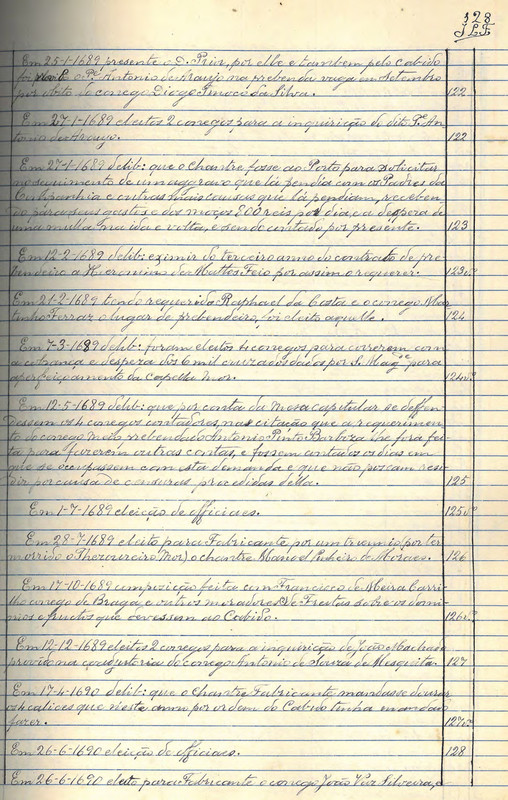 328
J.L.F.
Em 25-1-1689 presente o D. Prior, por elle e tambem pelo cabido
foi o Pe. Antonio de Araujo na prebenda vaga em Setembro
por obito do conego Diogo da Silva. 122
Em 27-1-1689 eleitos 2 conegos para a inquirição do dito Pe. An-
tonio de Araujo. 122
Em 27-1-1689 delib: que o chantre fosse ao Porto para solicitar
no seguimento de um aggravo que lá pendia com os Padres da
Companhia e outras mais causas que lá pendiam, receben-
do para seus gastos e dos moços 800 reis por dia, e a despeza de
uma mulla na ida e volta, e sendo contado por presente. 123
Em 12-2-1689 delib: eximir do terceiro anno do contrato de pre-
bendeiro a Hieronimo de Mattos Feio por assim o requerer. 123 vº
Em 21-2-1689 tendo requerido Raphael da Costa e o conego Mar-
tinho Ferraz o lugar de prebendeiro, foi eleito aquelle. 124
Em 7-3-1689 delib: foram eleitos 4 conegos para correrem com
a cobrança e despeza dos 6 mil cruzados dados por S. Mag.e para
aperfeiçoamento da capella mor. 124 vº
Em 12-5-1689 delib: que por conta da Mesa capitular se deffen-
dessem os 4 conegos contadores, na citação que a requerimen-
to do conego meio prebendado Antonio Pinto Barboza lhe fora fei-
ta para fazerem outras contas, e fossem contados os dias em
que se occupassem com esta demanda e que não possam resi-
dir por causa de censuras procedidas della. 125
Em 1-7-1689 eleição de officiaes. 125 vº
Em 28-7-1689 eleito para Fabricante por um triennio por ter
morrido o Thezoureiro Mor) o chantre Manoel Pinheiro de Moraes. 126
Em 17-10-1689 composição feita com Francisco de Meira Carri-
lho conego de Braga e outros moradores de Freitas sobre os dizi-
mos e fructos que devessem ao Cabido. 126 vº
Em 12-12-1689 eleitos 2 conegos para a inquirição de João Machado
provido na coadjutoria do conego Antonio de Souza de Mesquita. 127
Em 17-4-1690 delib: que o Chantre Fabricante mandasse dourar
os 4 calices que neste anno por ordem do Cabido tinha mandado
fazer. 127 vº
Em 26-6-1690 eleição de officiaes. 128
Em 26-6-1690 eleito para Fabricante o conego João Vaz Silveira, e